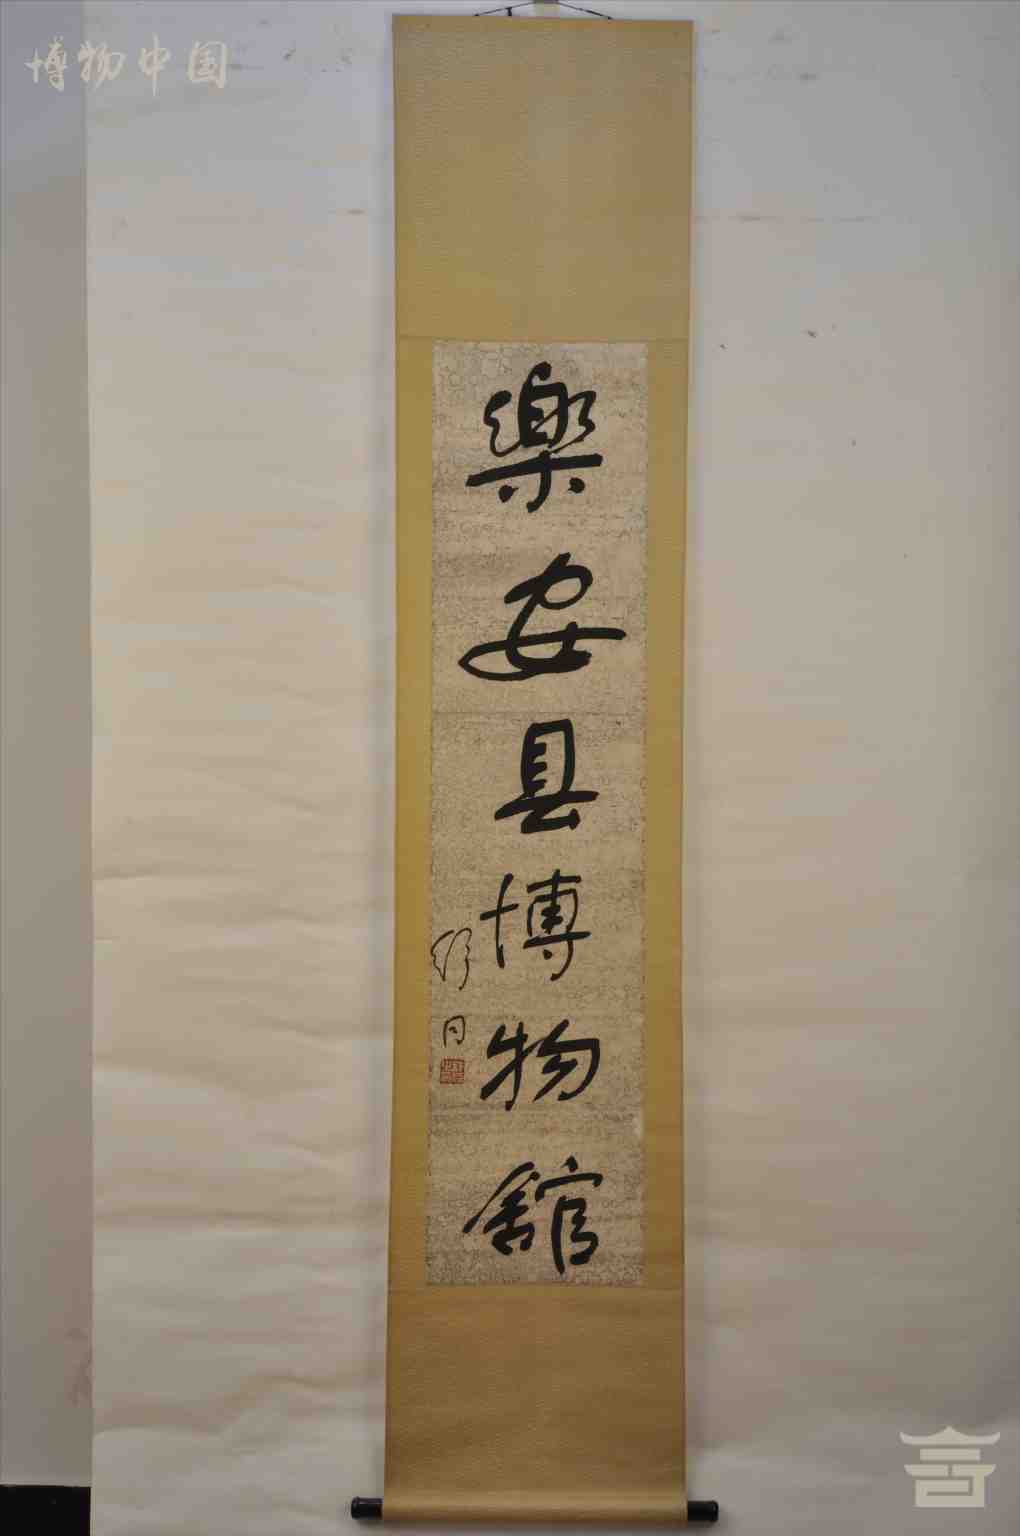 博物中国
樂安县博物館
舒同